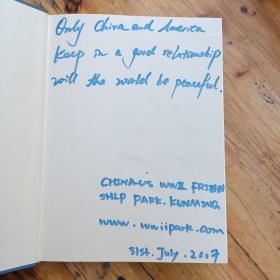 Only China and America
keep in a good relationship
will the world be peaceful.
CHINA-US WWII FRIEN
SHIP PARK. KUNMING
www.wwiipark.com
31st. July. 2017